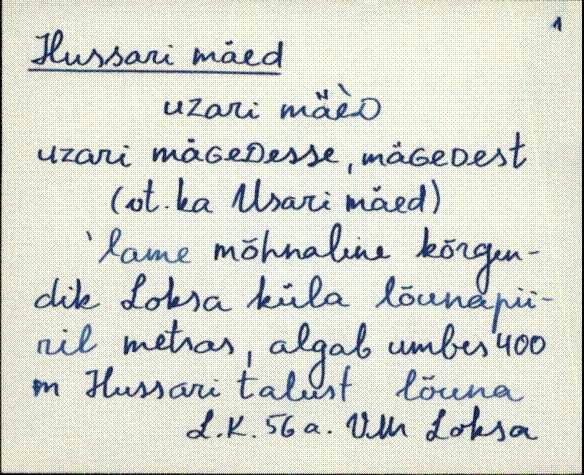 1
Hussari mäed
uzari mäèD
uzari mäGeDesse, mäGeDest
(vt. ka Usari mäed)
`lame mõhnaline kõrgen-
dik Loksa küla lõunapii-
ril metsas, algab umbes 400
m Hussari talust lõuna
L.K. 56 a. V.M Loksa